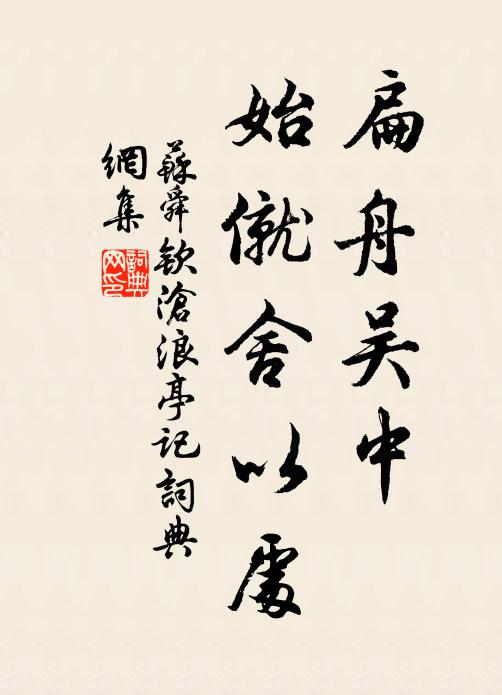 扁舟吴中
始僦舍以處
蘇舜欽滄浪亭記詞典
網集
詞典
网印